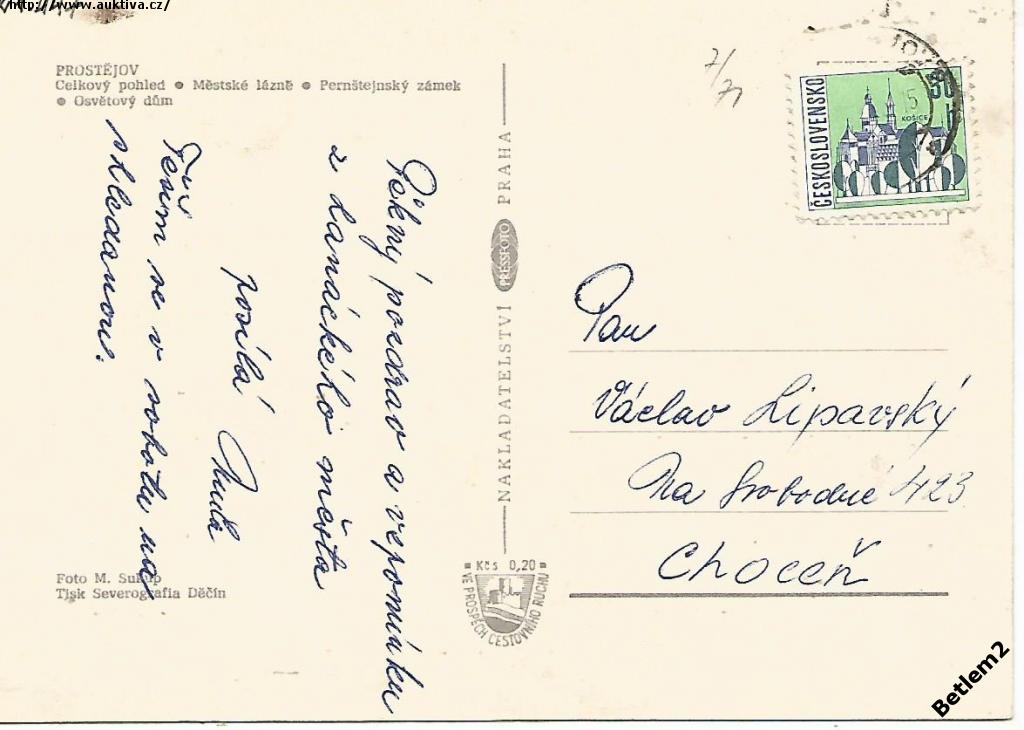 http://www.auktiva.cz/
PROSTĚJOV
Celkový pohled ● Městské lázně ● Pernštejnský zámek
● Osvětový dům
7/71
Pěkný pozdrav a vzpomínku
z hanáckého města
posílá
Těším se v sobotu na
shledanou.
Foto M. Sukup
Tisk Severografia Děčín
NAKLADATELSTVÍ PRESSFOTO PRAHA
Kčs 0,20
VE PROSPĚCH CESTOVNÍHO RUCHU
ČESKOSLOVENSKO
30 h
KOŠICE
Pan
Václav Lipavský
Na Svobodné 423
Choceň
Betlem2